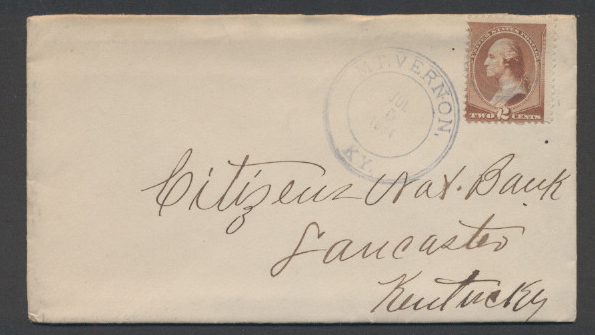 UNITED STATES POSTAGE
TWO 2 CENTS
MT. VERNON,
JUL
KY.
Citizens Nat. Bank
Lancaster
Kentucky